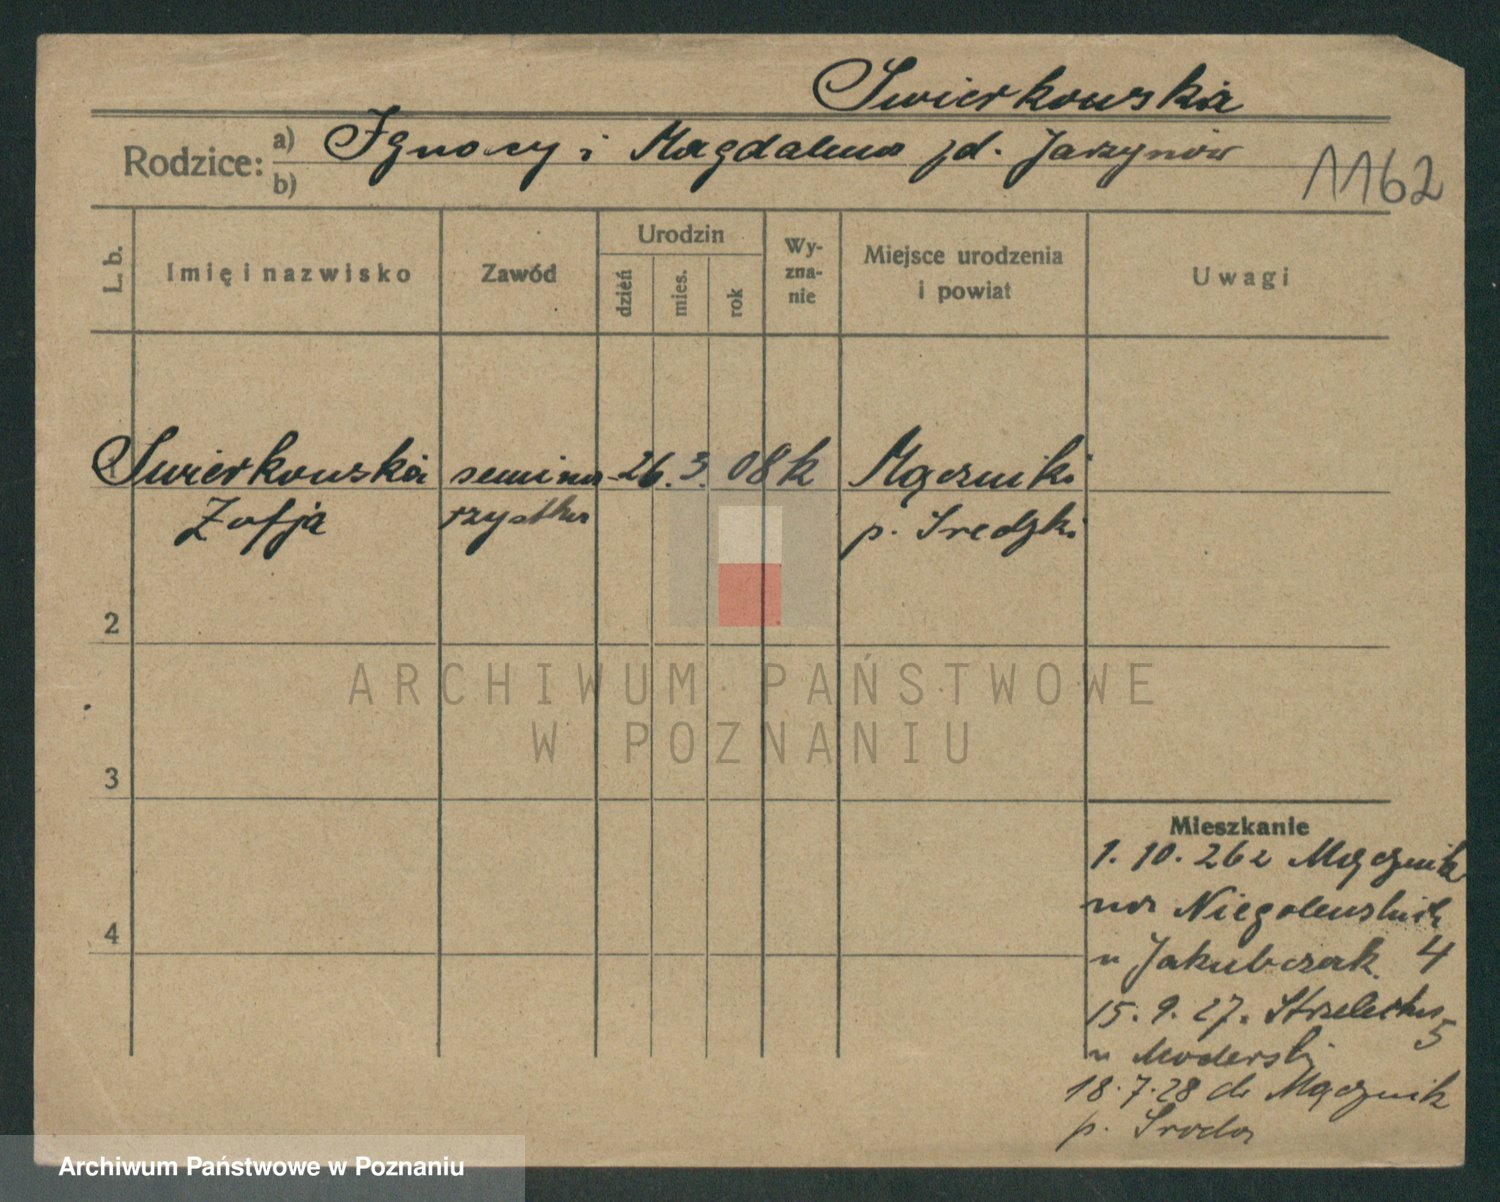 Swierkowska
Rodzice: a) Ignacy i Magdalena zd. Jarzynów
b)
1162
L. b.
Imię i nazwisko
Zawód
Urodzin
dzień
mies.
rok
Wy-
zna-
nie
Miejsce urodzenia
i powiat
Uwagi
Swierkowska semina- 26. 3. 08 k Mączniki
Zofja rzystka p. Sredzki
2
3
4
Mieszkanie
1. 10. 26 z Mącznik
na Niegolewskich
u Jakubczak 4
15. 9. 27. Strzelecka
5
u Moderski
18.7.28 do Mącznik
p. Sroda
ARCHIWUM PAŃSTWOWE
W POZNANIU
Archiwum Państwowe w Poznaniu